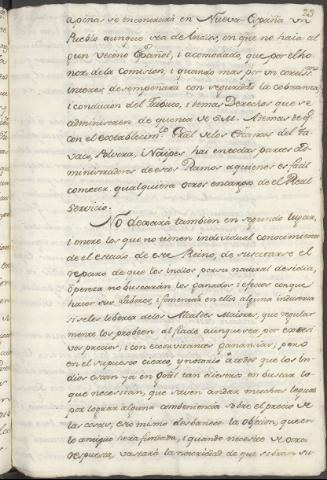 23
apenas se encontrará en Nueva España un
Pueblo aunque sea de Indios, en que no haia al
gun vecino Español, i acomodado, que por el ho
nor de la comision, i quando mas por un corto
interes desempeñará con seguridad la cobranza
i conducion del Tributo, i demas Derechos que se
administren de quenta de S.M. Ademas de q.
con el establecim.to de los Estancos del Ta
vaco, Polvora, i Naipes hai en todas partes Ad-
ministradores de estos Ramos a quienes es facil
cometer qualquiera otros encargos de el Real
Servicio.
No dexará tambien en segundo lugar,
i entre los que no tienen individual conocimiento
de el estado de este Reino, de suscitarse el
reparo de que los Indios por su natural desidia,
ó pereza no buscarán los ganados i efectos conque
hacer sus labores, i fomentar en ellos alguna industria
si se les liberta de los Alcaldes Maiores, que regular
mente los probeen al fiado aunque sea por excesi
vos precios, i con exorvitantes ganancias; pero
en el supuesto cierto, y notorio de que los In-
dios estan ya en gral tan diestros en buscar lo
que necesitan, que saven andar muchas leguas
por lograr alguna combeniencia sobre el precio de
las cosas, esto mismo desbanece la objecion, que en
lo antiguo sería fundada, i quando necesite de otra
respuesta, vastará la notoriedad de que sobran su-